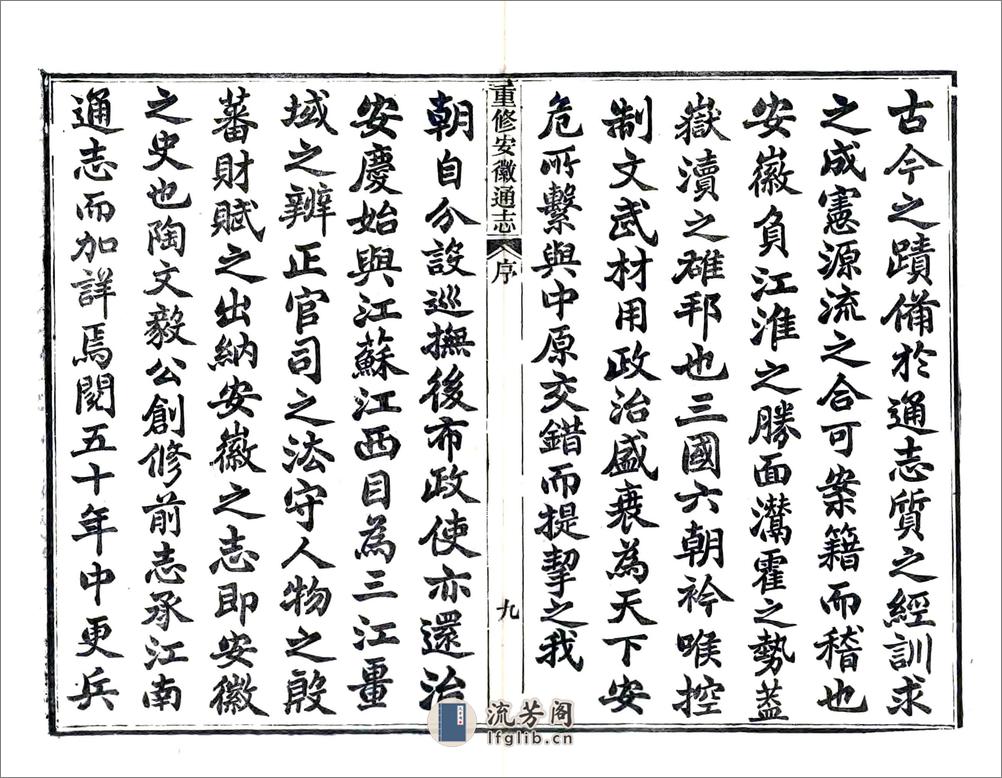 古今之蹟備於通志質之經訓求
之成憲源流之合可案籍而稽也
安徽負江淮之勝面灊霍之勢蓋
嶽瀆之雄邦也三國六朝衿喉控
制文武材用政治盛衰為天下安
危所繫與中原交錯而提挈之我
重修安徽通志
序
九
朝自分設巡撫後布政使亦還治
安慶始與江蘇江西目為三江畺
域之辨正官司之法守人物之殷
蕃財賦之出納安徽之志即安徽
之史也陶文毅公創修前志承江南
通志而加詳焉閱五十年中更兵
流芳阁
lfglib.cn